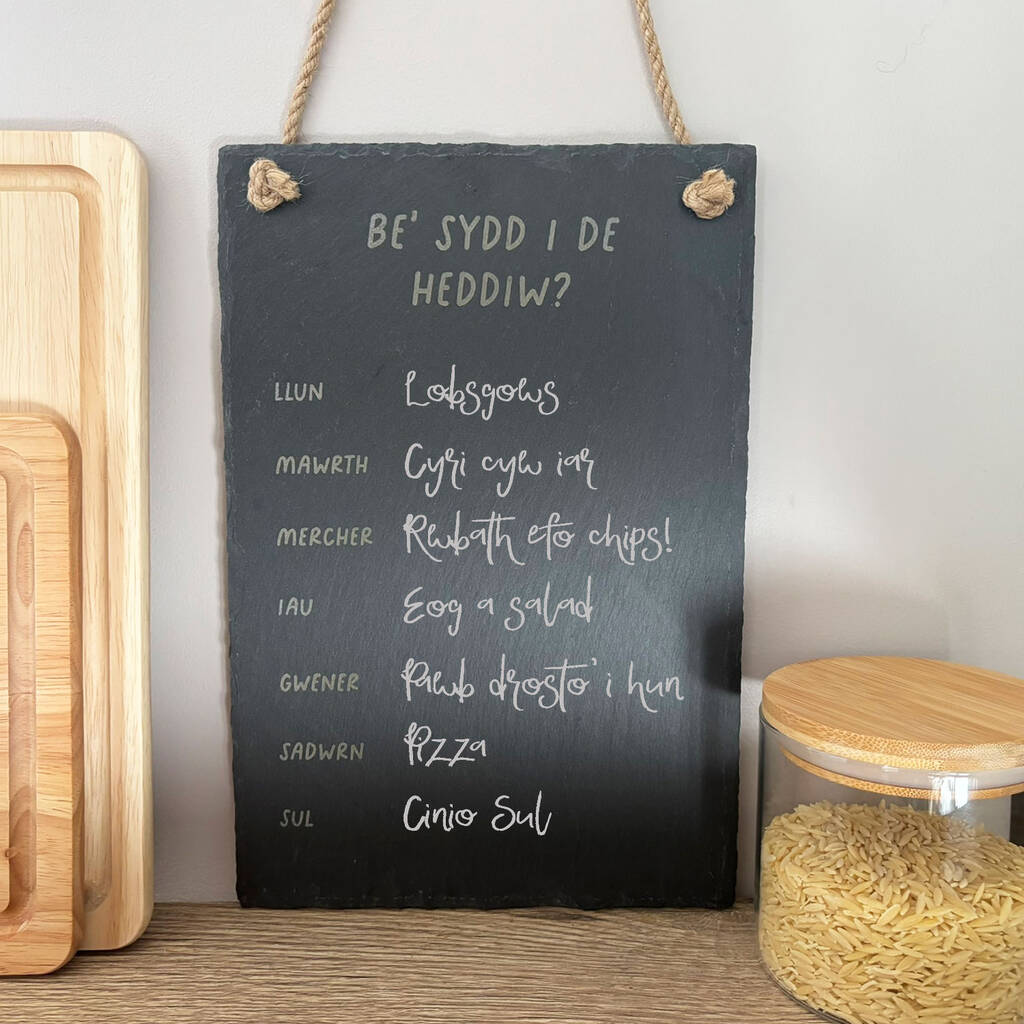 BE' SYDD I DE
HEDDIW?
LLUN Lobsgows
MAWRTH Cyri cyw iar
MERCHER Rwbath efo chips!
IAU Eog a salad
GWENER Pawb drosto' i hun
SADWRN Pizza
SUL Cinio Sul